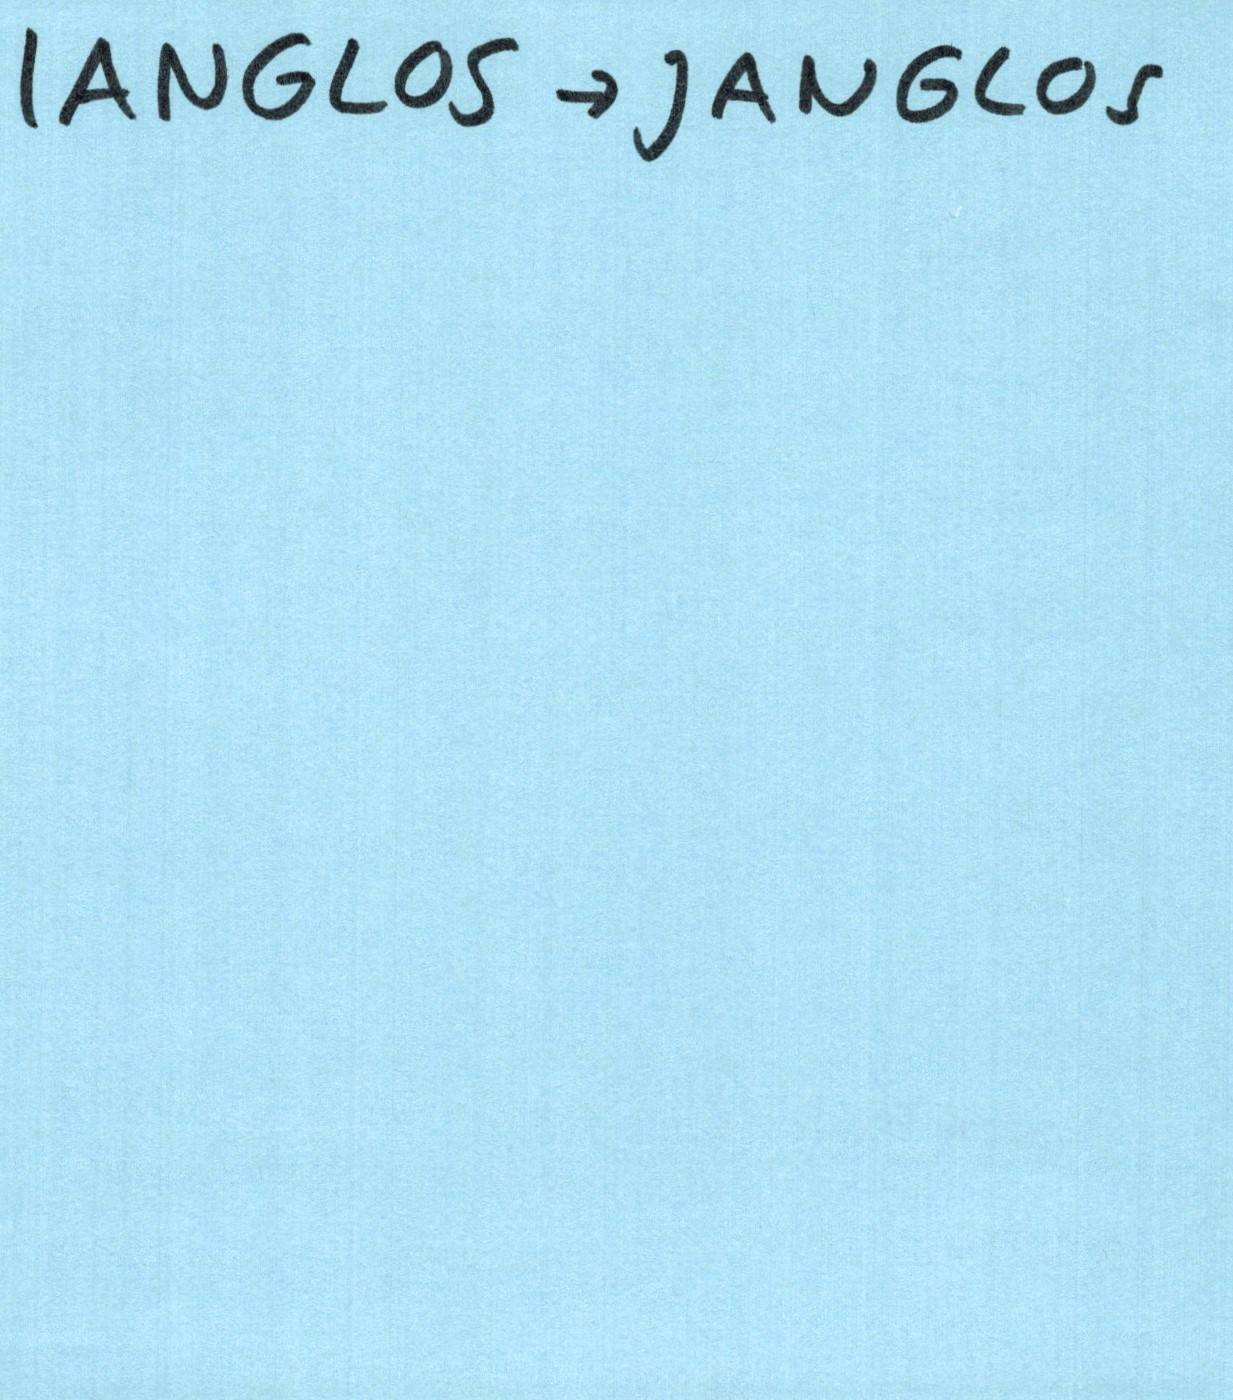 IANGLOS → JANGLOS